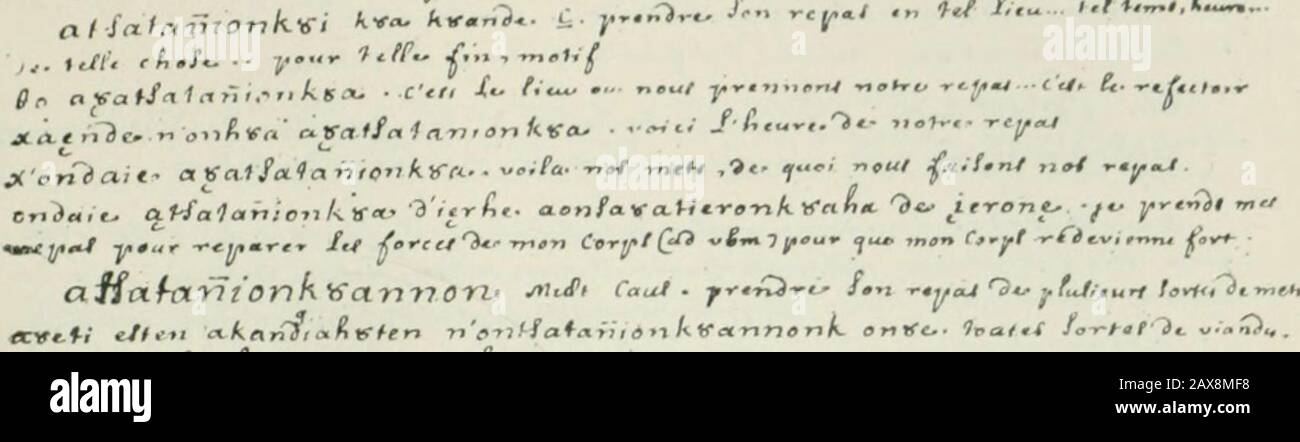 atsatañionk8i k8a k8ande. c. prendre son repas en tel lieu... tel tems, heure...
telle chose... pour telle fin, motif
θo a8atsatañionk8a. c'est le lieu ou nous prennons notre repas... c'est le refectoir
n'onh8a a8atsatanionk8a. voici l'heure de notre repas
x'ondaie a8atsatañionk8a. voila nos mets, de quoi nous faisons nos repas.
ondaie atsatañionk8a d'ierhe aonsa8atieronk8aha de ierone. je prends mes
repas pour reparer les forces de mon corps pour que mon corps redevienne fort.
atsatañionk8annon Mult Caus. prendre son repas de plusieurs sortes de mets
a8eti esten n'ontsatañionk8annonk on8e. toutes sortes de viande.
alamy
a
Image ID: 2AX8MF8
www.alamy.com